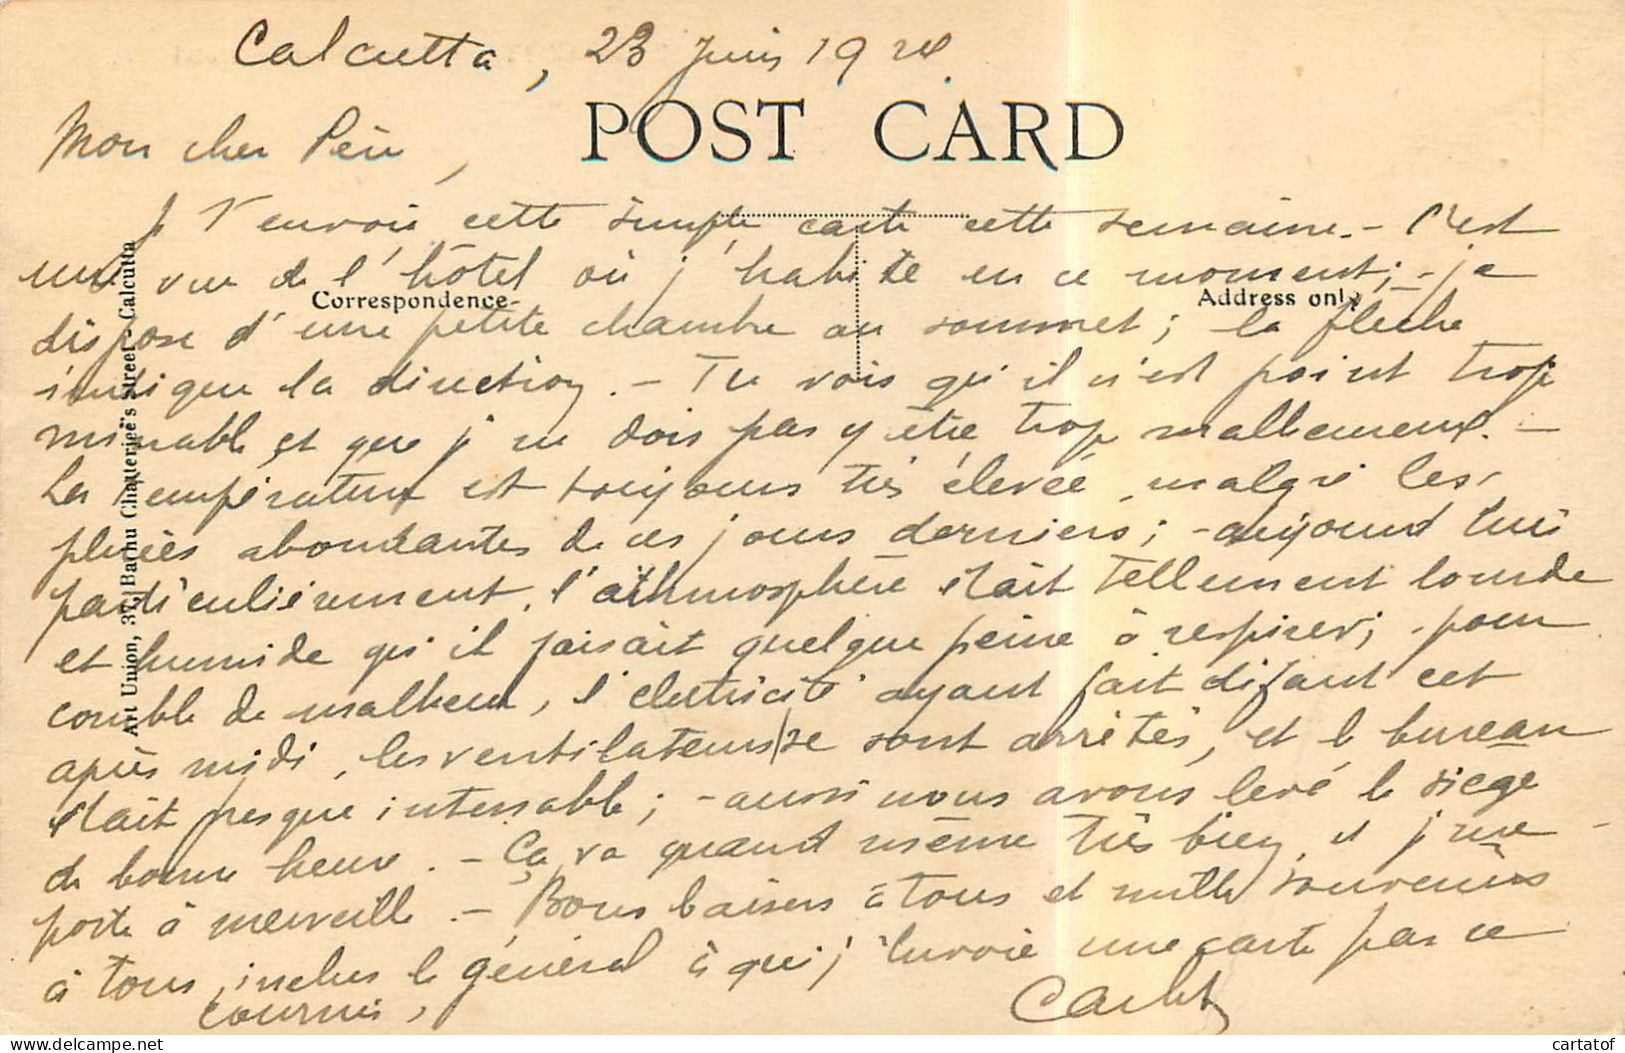 Calcutta, 23 Juin 19
POST CARD
Mon cher Père,
Je t'envoie cette simple carte cette semaine. - C'est
une vue de l'hôtel où j'habite en ce moment; - je
Correspondence-
Address only
dispose d'une petite chambre au sommet; la flèche
indique la direction. - Tu vois qu'il n'est point trop
minable et que je ne dois pas y être trop malheureux. -
La température est toujours très élevée, malgré les
pluies abondantes de ces jours derniers; - aujourd'hui
particulièrement, l'athmosphère était tellement lourde
et humide qu'il faisait quelque peine à respirer; pour
comble de malheur, l'électricité ayant fait défaut cet
après midi, les ventilateurs se sont arrêtés, et le bureau
était presque intenable; - aussi nous avons levé le siège
de bonne heure. - Ça va quand même très bien, et je me
porte à merveille. - Bons baisers à tous et mille souvenirs
à tous, inclus le général à qui j'envoie une carte par ce
courrier,
Art Union, Bachu Chatterjee's Street - Calcutta
cartatof